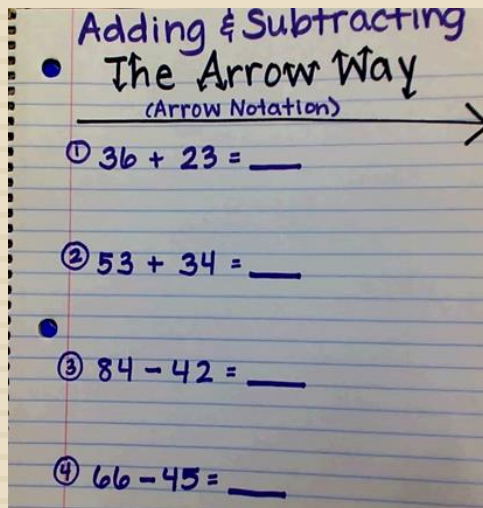 Adding & Subtracting
The Arrow Way
(Arrow Notation)
① 36 + 23 = ___
② 53 + 34 = ___
③ 84 - 42 = ___
④ 66 - 45 = ___